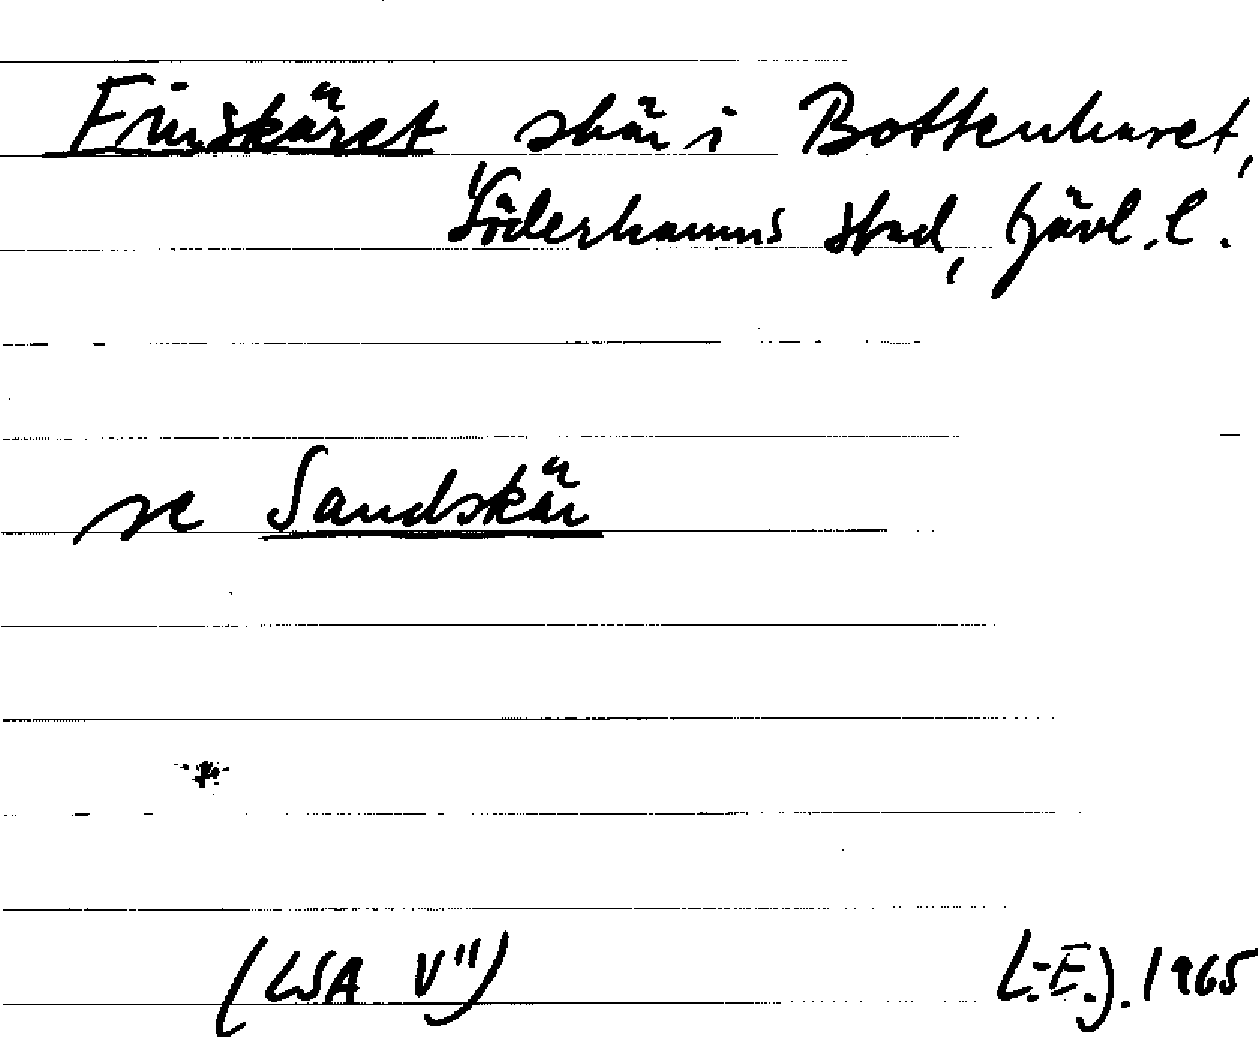 Finskäret skär i Bottenhavet,
Söderhamns stad, Gävl. l.
se Sandskär
(LSA V")
L.-E.J. 1965